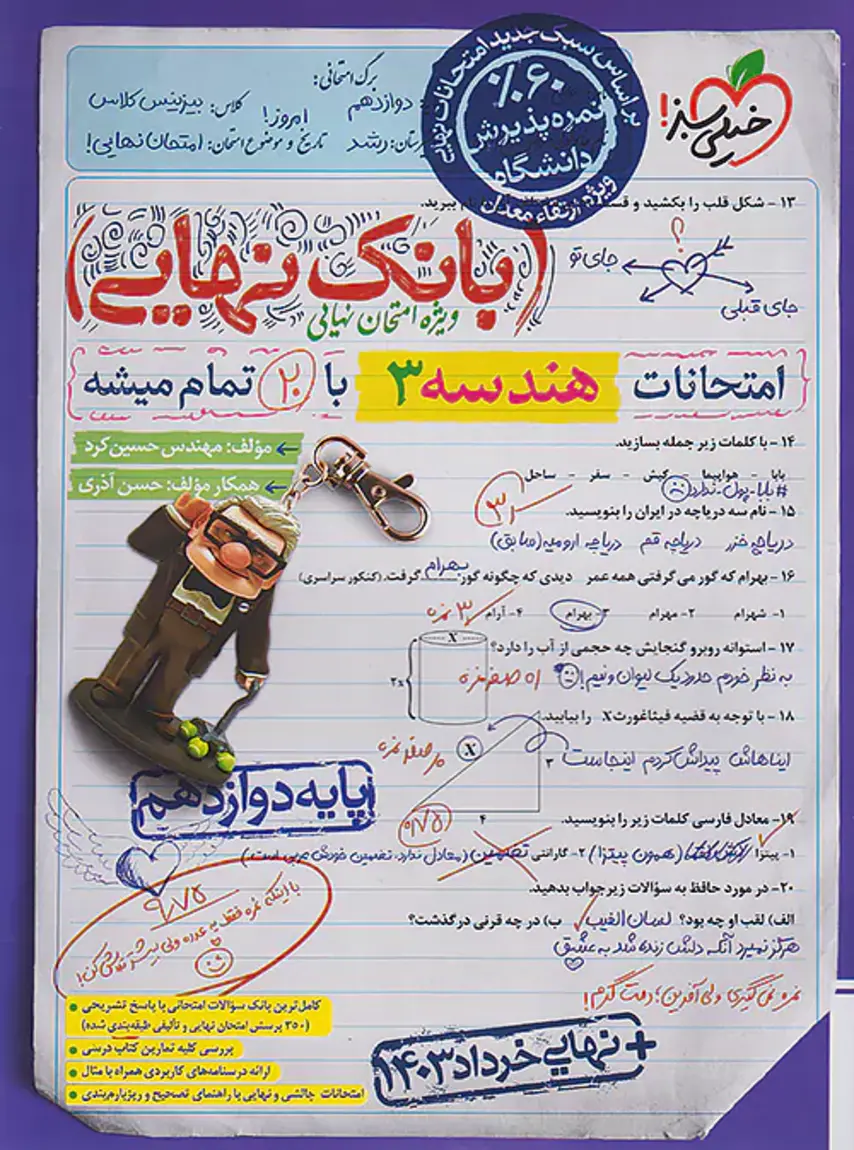 برگ امتحانی:
دوازدهم
امروز!
کلاس: بیزینس کلاس
رشد
تاریخ و موضوع امتحان: امتحان نهایی!
بر اساس سبک جدید امتحانات نهایی
%۶۰
نمره پذیرش
دانشگاه
ویژه ارتقاء معدل
خیلی سبز!
۱۳ - شکل قلب را بکشید و ببرید.
؟
جای تو
جای قبلی
(بانک نهایی)
ویژه امتحان نهایی
امتحانات هندسه ۳ با ۲۰ تمام میشه
مؤلف: مهندس حسین کرد
همکار مؤلف: حسن آذری
۱۴ - با کلمات زیر جمله بسازید.
بابا - هواپیما - کیش - سفر - ساحل
#بابا-پول-ندارد
۱۵ - نام سه دریاچه در ایران را بنویسید.
دریاچه خزر دریاچه قم دریاچه ارومیه (سابق)
۱۶ - بهرام که گور می‌گرفتی همه عمر دیدی که چگونه گور بهرام گرفت. (کنکور سراسری)
۱- شهرام ۲- مهرام ۳- بهرام ۴- آرام
۱۷ - استوانه روبرو گنجایش چه حجمی از آب را دارد؟
X
۲x
به نظر خودم حدود یک لیوان و نیم!
۱۸ - با توجه به قضیه فیثاغورث X را بیابید.
X
۳
۴
ایناهاش پیداش کردم اینجاست
پایه دوازدهم
۱۹ - معادل فارسی کلمات زیر را بنویسید.
۰/۷۵
۱- پیتزا (همون پیتزا) ۲- گارانتی تضمین (معادل ندارد، تضمین خودش عربی است.)
۲۰- در مورد حافظ به سؤالات زیر جواب بدهید.
الف) لقب او چه بود؟ لسان الغیب ب) در چه قرنی درگذشت؟
هرگز نمیرد آنکه دلش زنده شد به عشق
۹/۷۵
با اینکه نمره فقط یه عدده ولی بیشتر تلاش کن!
نمره نمی‌گیری ولی آفرین؛ دمت گرم!
کامل‌ترین بانک سؤالات امتحانی با پاسخ تشریحی
(۳۵۰ پرسش امتحان نهایی و تألیفی طبقه‌بندی شده)
بررسی کلیه تمارین کتاب درسی
ارائه درسنامه‌های کاربردی همراه با مثال
امتحانات چالشی و نهایی با راهنمای تصحیح و ریزبارم‌بندی
+ نهایی خرداد ۱۴۰۳